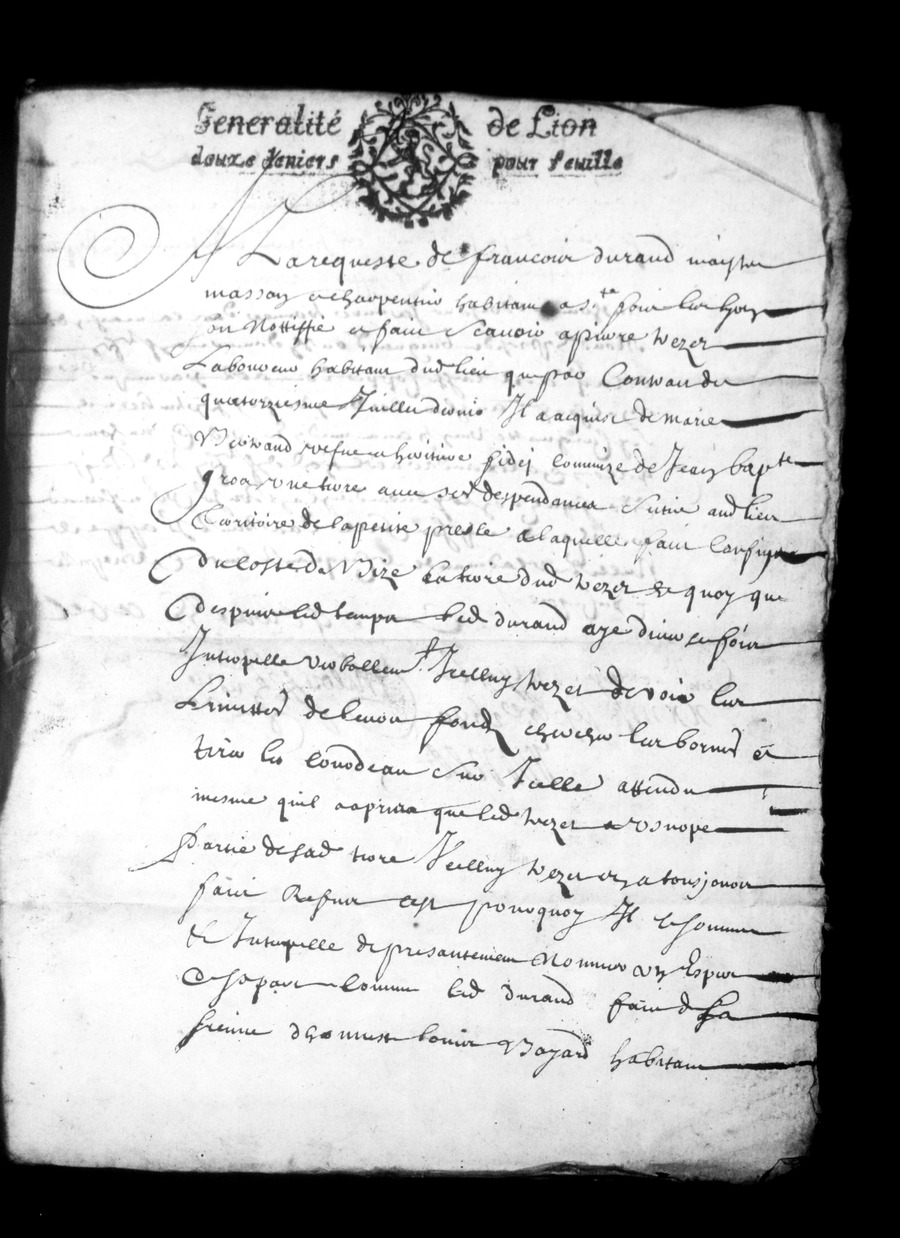 Generalité de Lion
douze deniers pour feuille
A La requeste de francois durand maistre
masson & charpentier habitant a s.te foy
soit Nottiffié et faict scavoir a pierre vezet
Laboureur habitant dud lieu que par Contract du
quatorziesme Juillet dernier Il a acquis de marie
vefve & heritiere fidei commize de Jean bapte
gros une terre avec ses despendances scituee aud lieu
territoire de la petite presle a laquelle faict confins
du costé de Bize la terre dud vezet & quoy que
despuis led temps led durand aye divers fois
Interpellé verballement Icelluy vezet de voir
Limitter de leur fonds chercher leur bornes et
tirer le cordeau sur Icelle attendu
mesme quil a apris que led vezet a usurpé
partie de sad terre Icelluy vezet en a tousjours
faict Refus cest pourquoy Il le somme
& Interpelle de presentement Nommer un Expert
de sa part comme led durand faict de sa
sienne dhonneste Bayard habitant